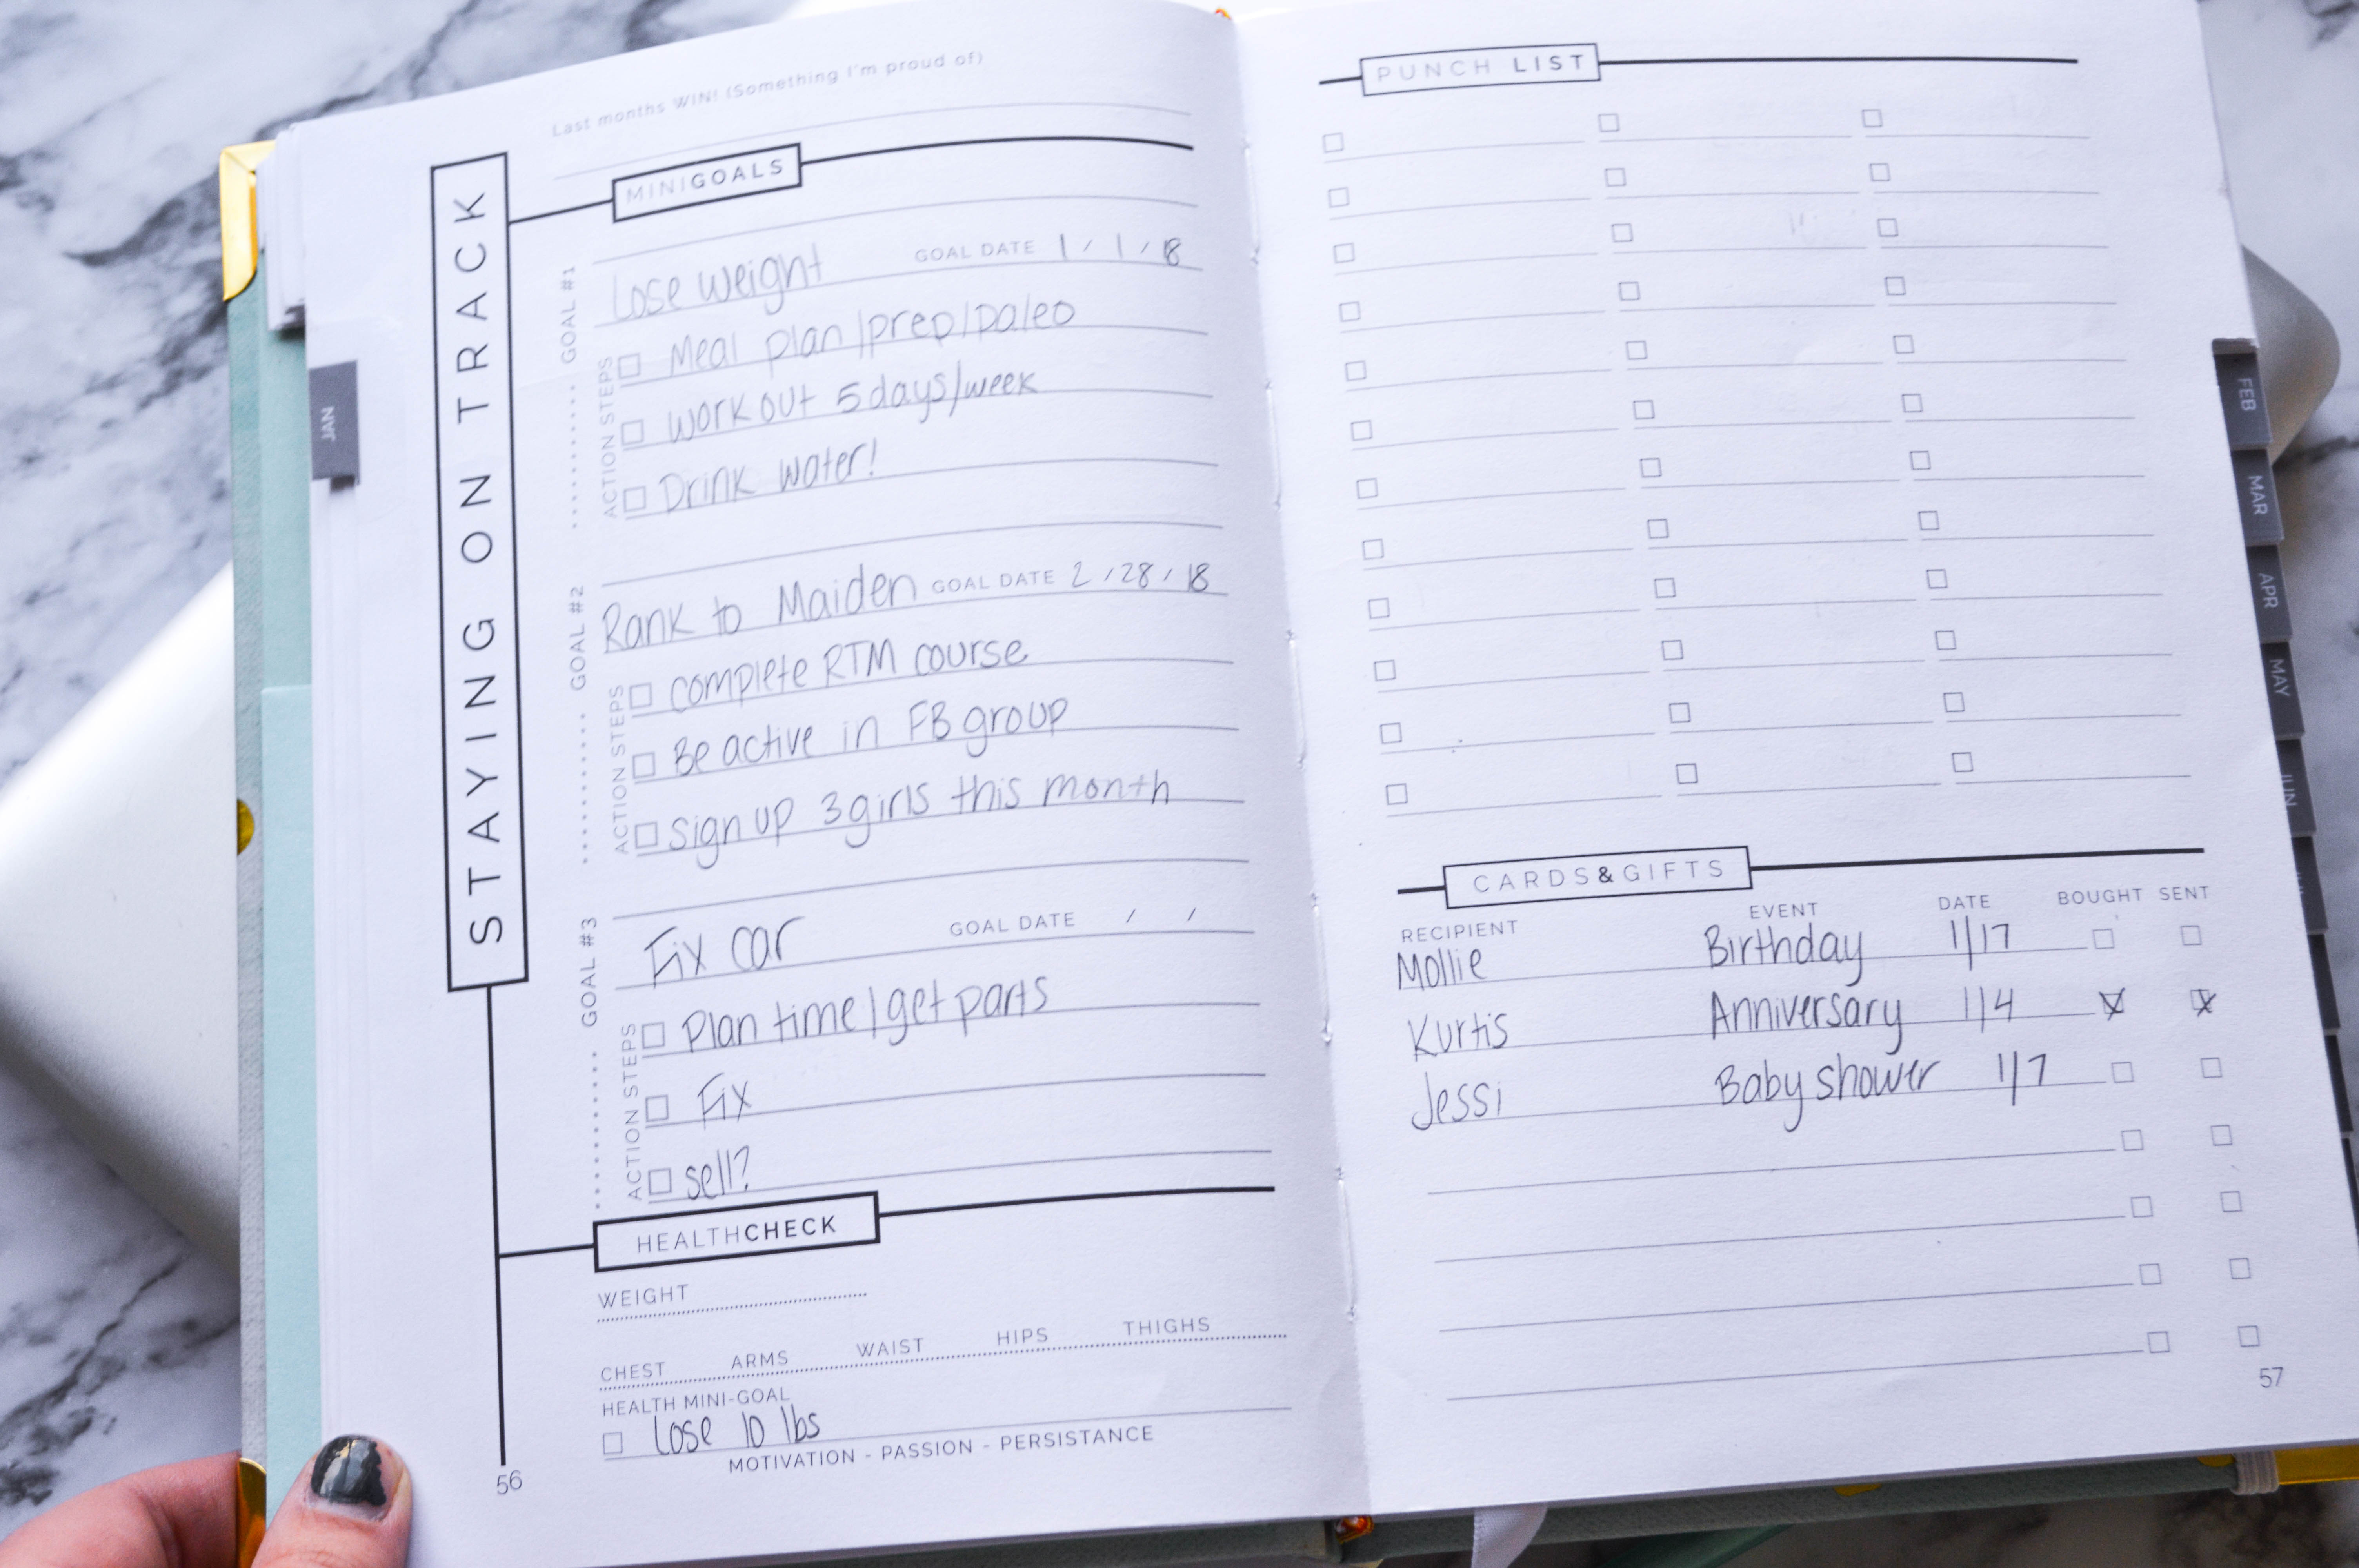 Last months WIN! (Something I'm proud of)
STAYING ON TRACK
MINIGOALS
JAN
GOAL #1
Lose weight GOAL DATE 1 / 1 / 18
ACTION STEPS
Meal plan/prep/paleo
Work out 5 days/week
Drink water!
GOAL #2
Rank to Maiden GOAL DATE 2 / 28 / 18
ACTION STEPS
complete RTM course
Be active in FB group
sign up 3 girls this month
GOAL #3
Fix car GOAL DATE / /
ACTION STEPS
Plan time/get parts
Fix
sell?
HEALTHCHECK
WEIGHT
CHEST ARMS WAIST HIPS THIGHS
HEALTH MINI-GOAL
Lose 10 lbs
MOTIVATION - PASSION - PERSISTANCE
56
PUNCH LIST
CARDS&GIFTS
RECIPIENT EVENT DATE BOUGHT SENT
Mollie Birthday 1/17
Kurtis Anniversary 1/4
Jessi Baby shower 1/7
57
FEB
MAR
APR
MAY
JUN